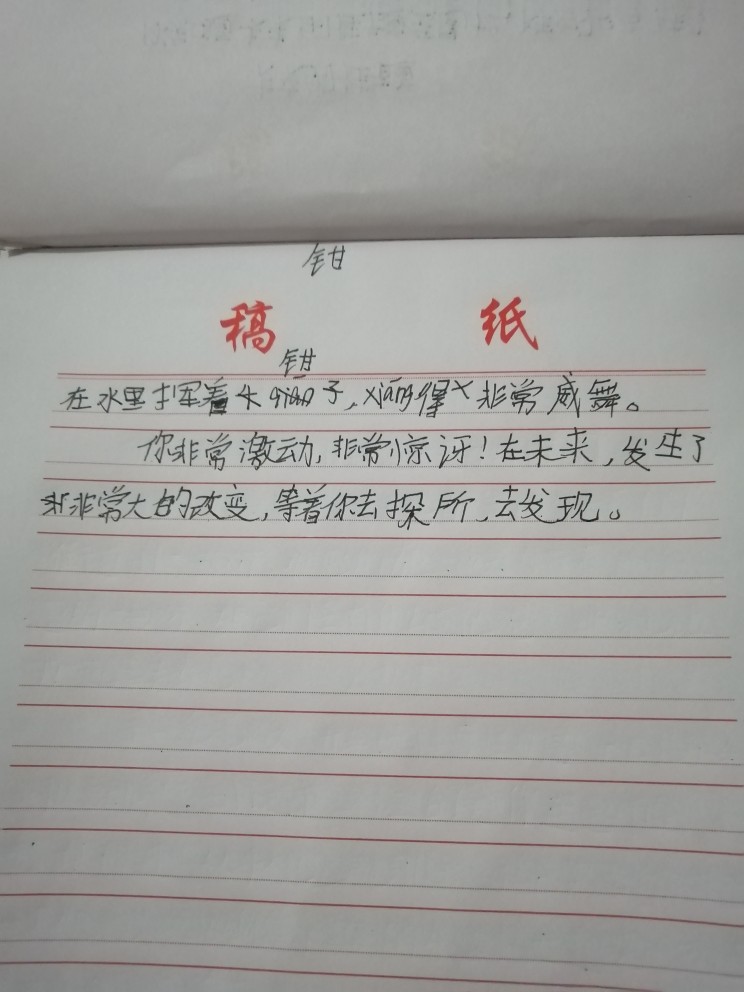 钳
稿 纸
钳
在水里挥着大qián子，xiǎng得非常威舞。
你非常激动，非常惊讶！在未来，发生了
非常大的改变，等着你去探所，去发现。